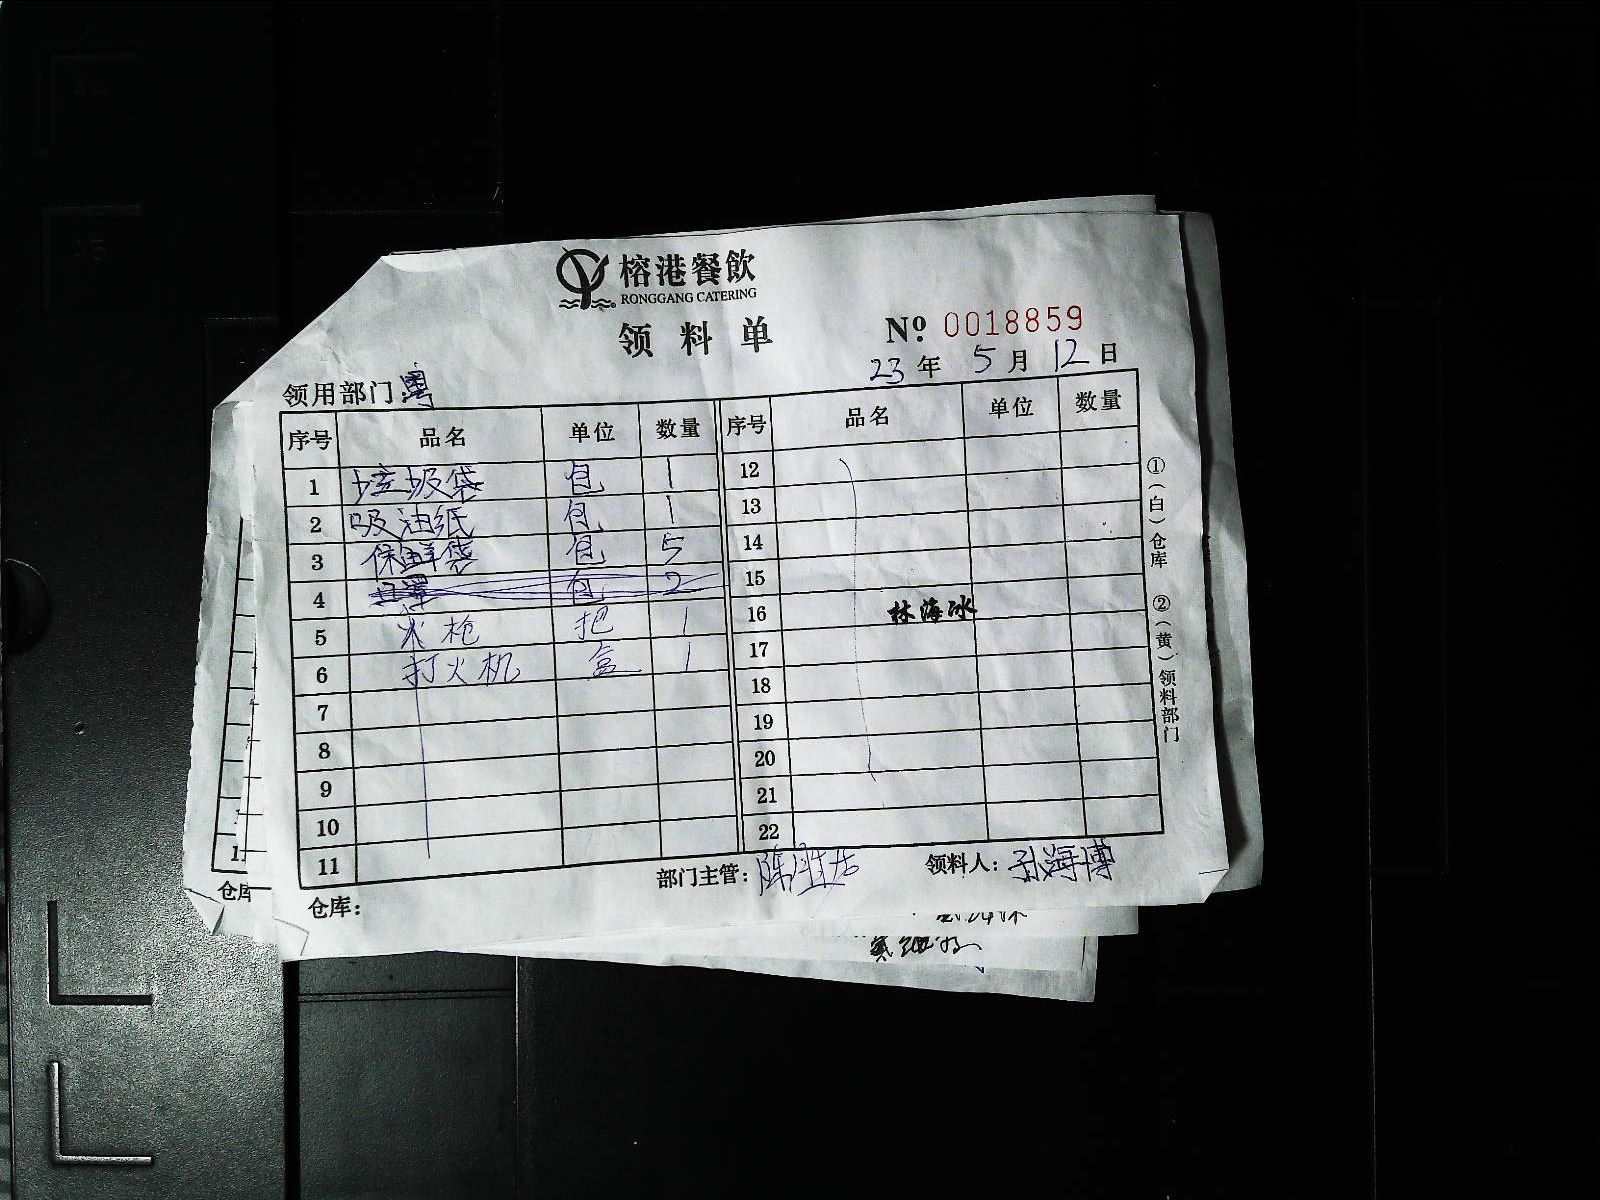 榕港餐飲
RONGGANG CATERING
领料单
№ 0018859
23年 5月 12日
领用部门:粤
序号 品名 单位 数量 序号 品名 单位 数量
1 垃圾袋 包 1 12
2 吸油纸 包 1 13
3 保鲜袋 包 5 14
4 口罩 包 2 15
5 火枪 把 1 16 林海冰
6 打火机 盒 1 17
7 18
8 19
9 20
10 21
11 22
①(白)仓库 ②(黄)领料部门
仓库: 部门主管:陈胜 领料人:孙海博
11
仓库